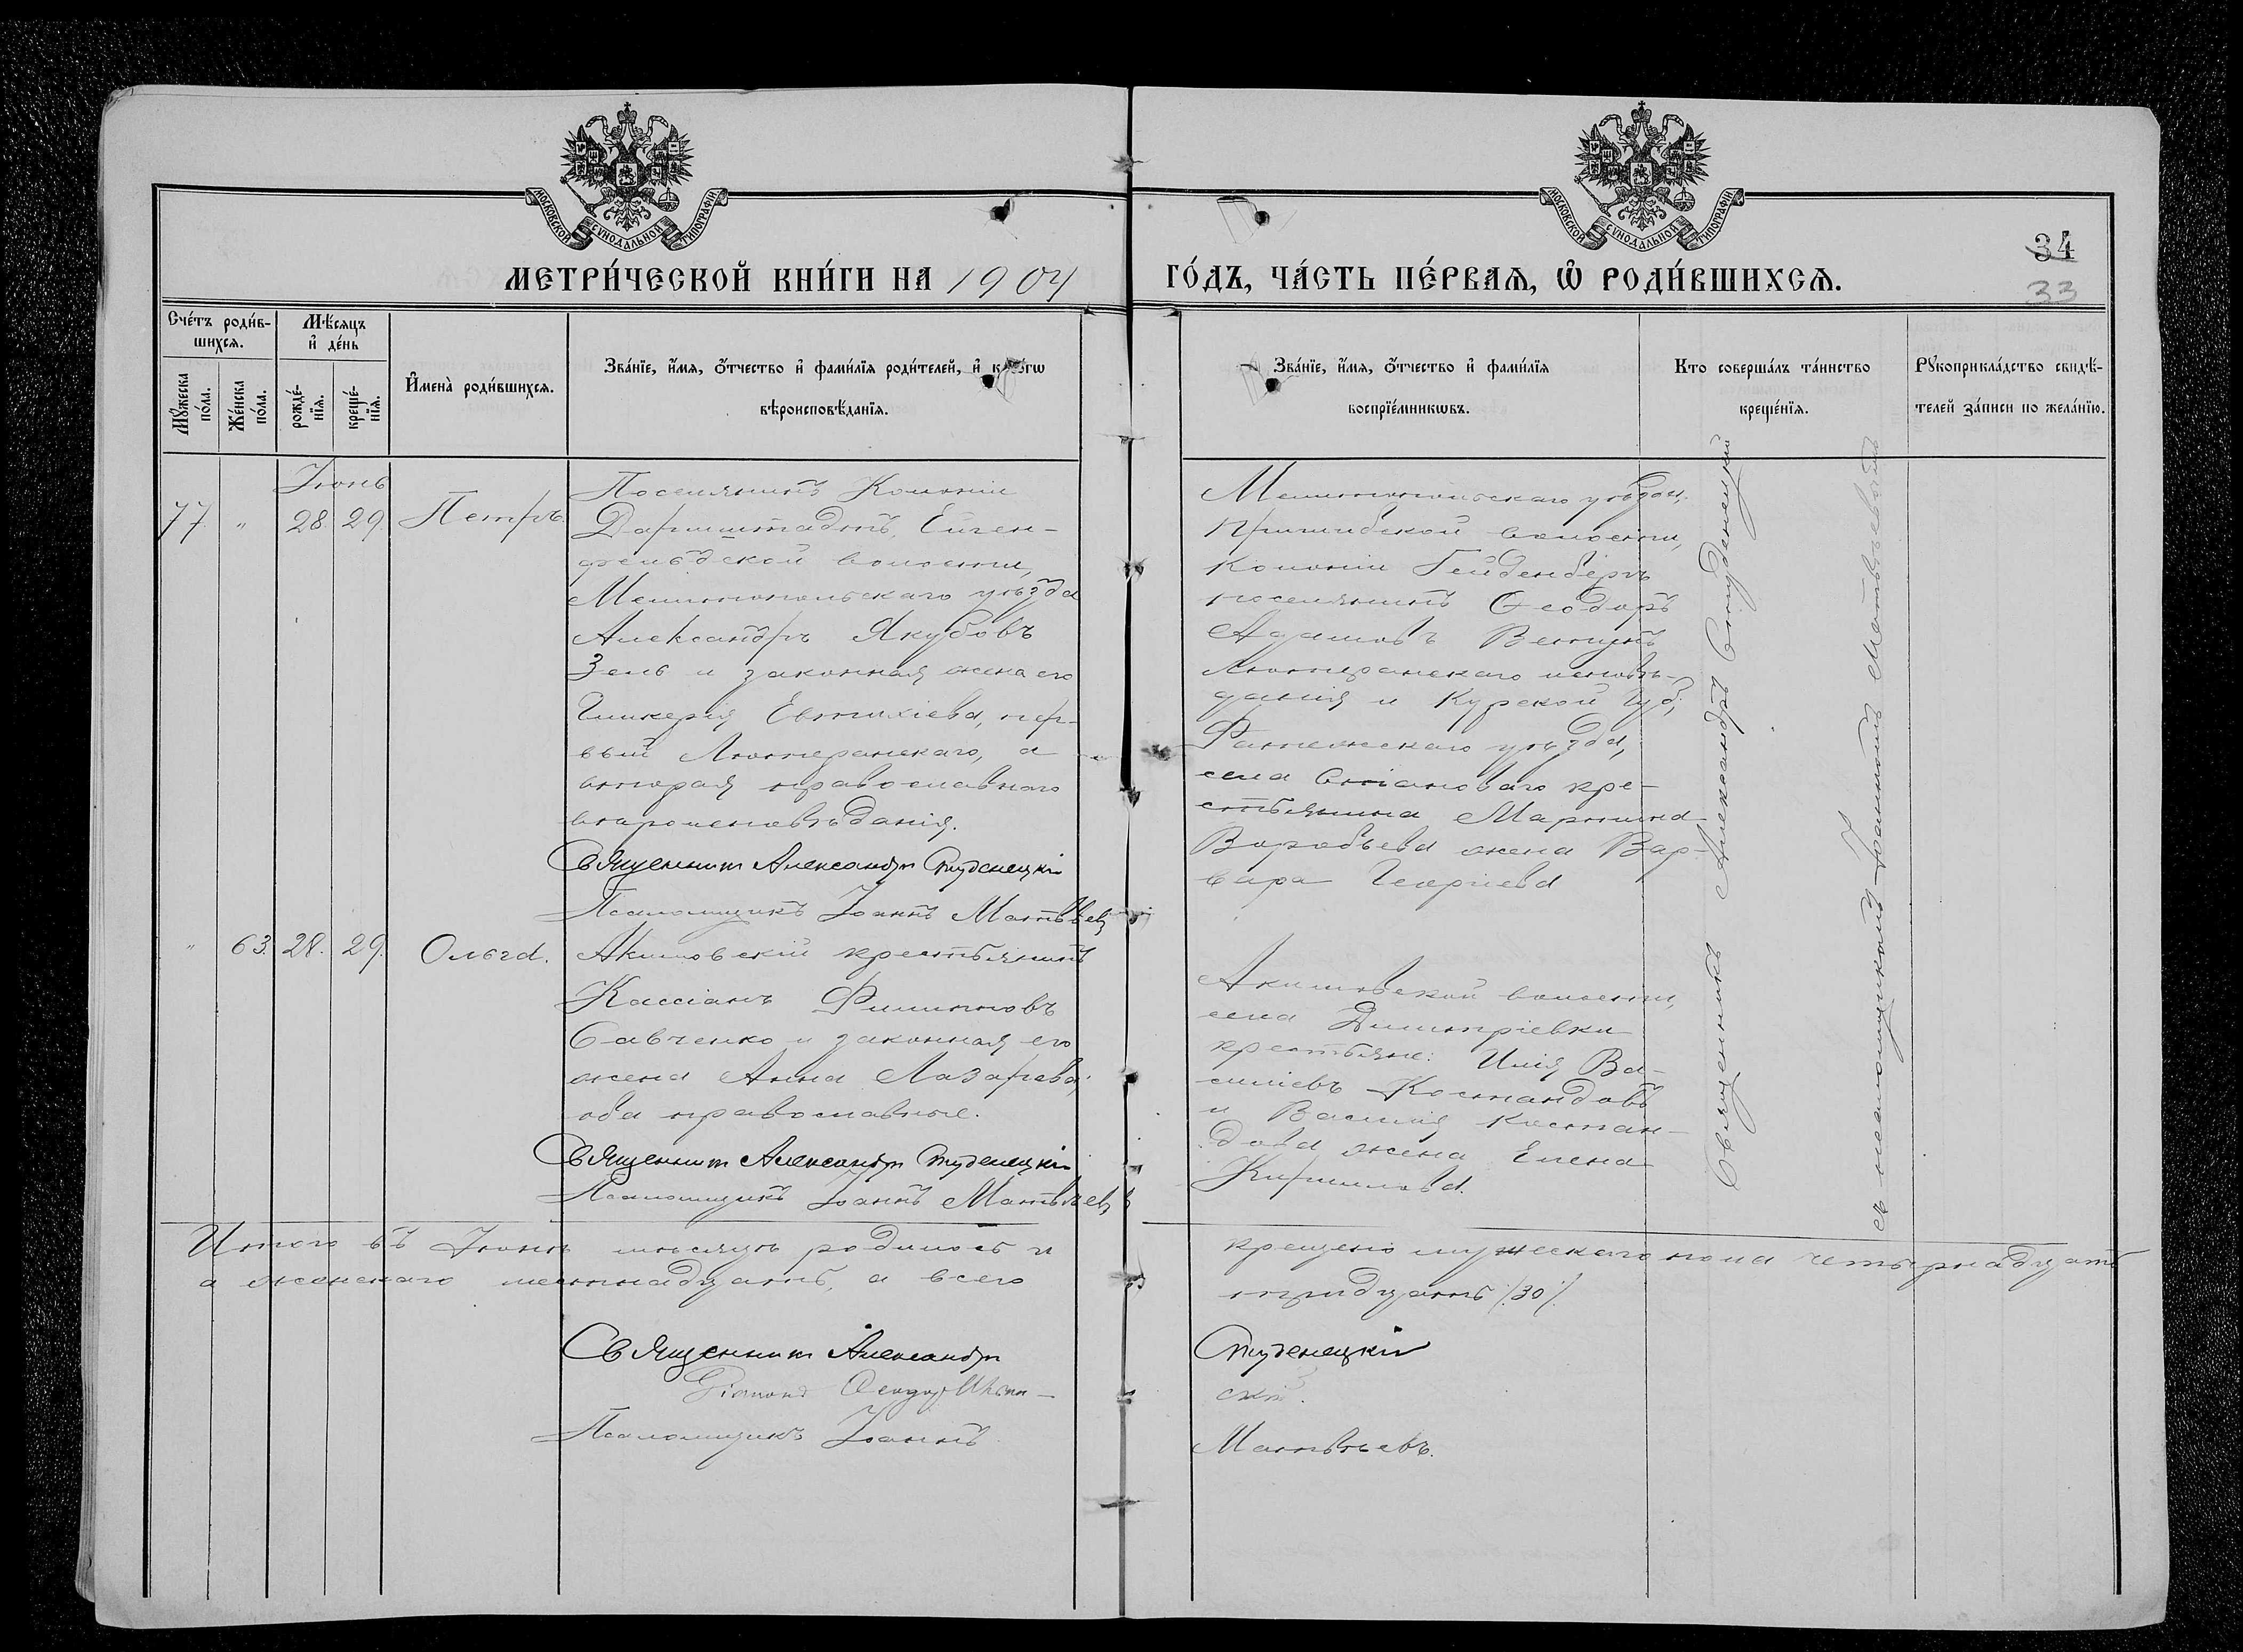 МОСКОВСКОЙ СѴНОДАЛЬНОЙ ТИПОГРАФІИ
МОСКОВСКОЙ СѴНОДАЛЬНОЙ ТИПОГРАФІИ
34
33
МЕТРИ́ЧЕСКОЙ КНИ́ГИ НА 1904 ГО́ДЪ, ЧА́СТЬ ПЕ́РВАѦ, Ѡ҆ РОДИ́ВШИХСѦ.
Сче́тъ роди́в-
шихсѧ.
Мꙋ́жеска
по́ла.
Же́нска
по́ла.
Мѣ́сѧцъ
и҆ де́нь
рожде́-
нїѧ.
креще́-
нїѧ.
И҆мена̀ роди́вшихсѧ.
Зва́нїе, и҆́мѧ, ѻ҆́тчество и҆ фами́лїѧ роди́телей, и҆ како́гѡ
вѣроисповѣ́данїѧ.
Зва́нїе, и҆́мѧ, ѻ҆́тчество и҆ фами́лїѧ
воспрїе́мникѡвъ.
Кто соверша́лъ та́инство
креще́нїѧ.
Рꙋкоприкла́дство свидѣ́-
телей за́писи по жела́нїю.
Іюнь
77. " 28. 29. Петръ.
Поселянинъ Колоніи
Дармштадтъ, Ейген-
фельдской волости,
Мелитопольскаго уѣзда
Александръ Якубовъ
Зель и законная жена его
Гликерія Евтихіева, пер-
вый Лютеранскаго, а
вторая православнаго
вѣроисповѣданія.
Священникъ Александръ Студенецкій
Псаломщикъ Іоаннъ Матвѣевъ
Мелитопольскаго уѣзда,
Пришибской волости,
колоніи Гейденбергъ
поселянинъ Ѳеодоръ
Адамовъ
Лютеранскаго исповѣ-
данія и Курской Губ.,
Фатежскаго уѣзда,
села
крестьянина Мартина
Воробьева жена Вар-
вара Георгіева
Священникъ Александръ Студенецкій
съ псаломщикомъ Іоанномъ Матвѣевымъ
" 63. 28. 29. Ольга.
Акимовскій крестьянинъ
Кассіанъ Филипповъ
Савченко и законная его
жена Анна Лазарева,
оба православные.
Священникъ Александръ Студенецкій
Псаломщикъ Іоаннъ Матвѣевъ
Акимовской волости,
села Димитріевки
крестьяне: Илія Ва-
силіевъ Костандовъ
и Василія Костан-
дова жена Елена
Кириллова.
Итого въ Іюнѣ мѣсяцѣ родилось и крещено мужескаго пола четырнадцать
а женскаго шестнадцать, а всего тридцать /30/.
Священникъ Александръ Студенецкій
Псаломщикъ Іоаннъ Матвѣевъ.